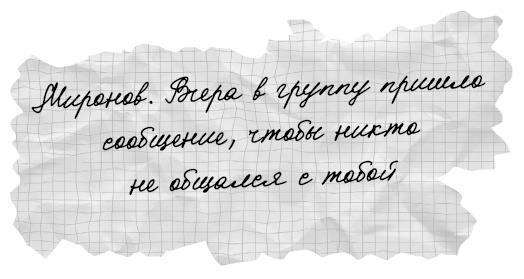 Миронов. Вчера в группу пришло
сообщение, чтобы никто
не общался с тобой